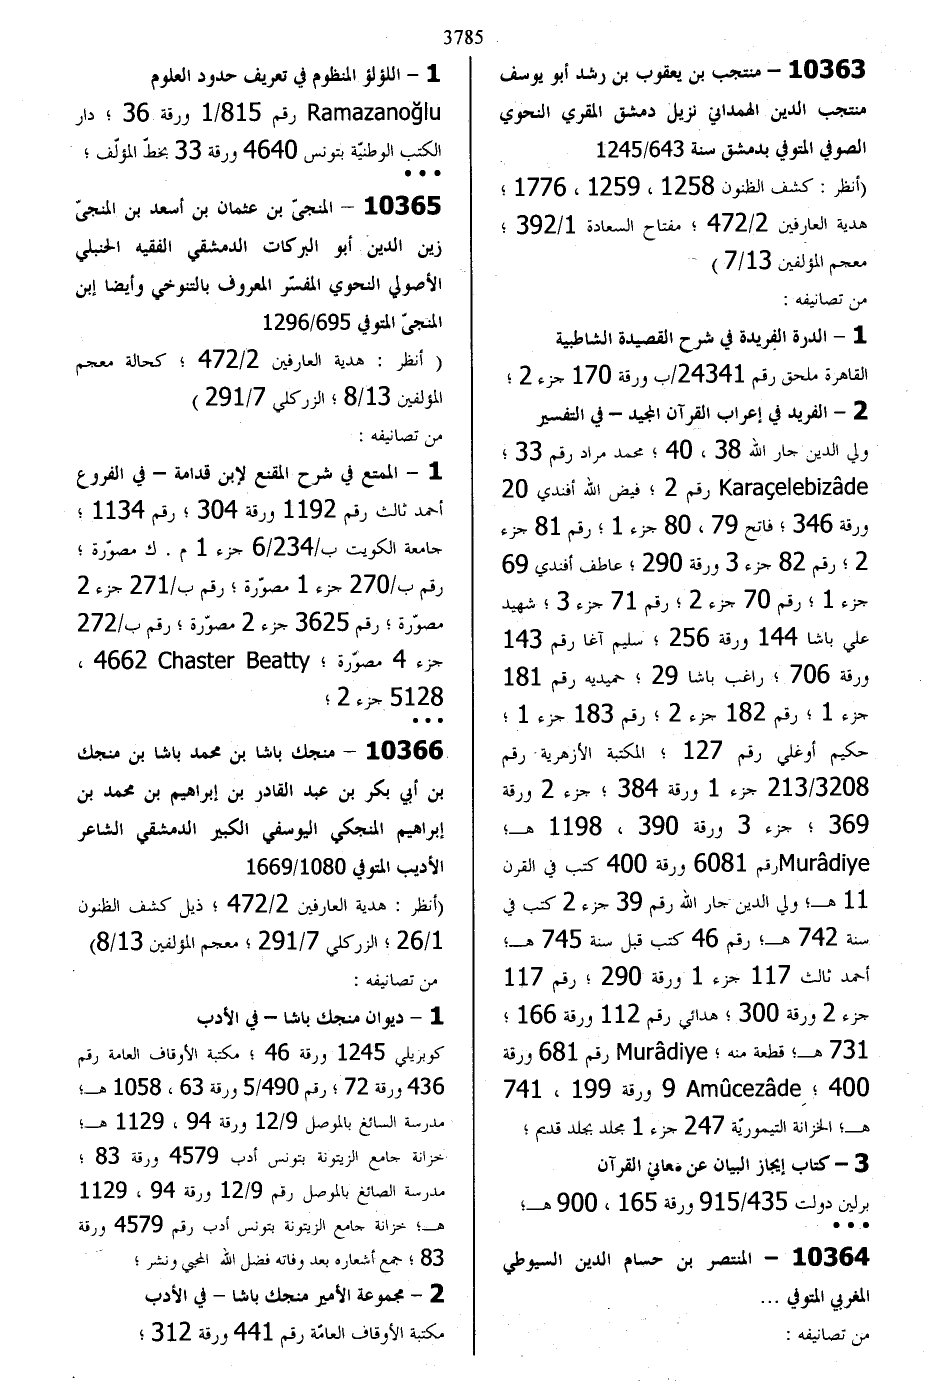 3785
10363 – منتجب بن يعقوب بن رشد أبو يوسف
منتجب الدين الهمداني نزيل دمشق المقري النحوي
الصوفي المتوفي بدمشق سنة 1245/643
(أنظر : كشف الظنون 1258 ، 1259 ، 1776 ؛
هدية العارفين 472/2 ؛ مفتاح السعادة 392/1 ؛
معجم المؤلفين 7/13 )
من تصانيفه :
1 – الدرة الفريدة في شرح القصيدة الشاطبية
القاهرة ملحق رقم 24341/ب ورقة 170 جزء 2 ؛
2 – الفريد في إعراب القرآن المجيد – في التفسير
ولي الدين جار الله 38 ، 40 ؛ محمد مراد رقم 33 ؛
Karaçelebizâde رقم 2 ؛ فيض الله أفندي 20
ورقة 346 ؛ فاتح 79 ، 80 جزء 1 ؛ رقم 81 جزء
2 ؛ رقم 82 جزء 3 ورقة 290 ؛ عاطف أفندي 69
جزء 1 ؛ رقم 70 جزء 2 ؛ رقم 71 جزء 3 ؛ شهيد
علي باشا 144 ورقة 256 ؛ سليم آغا رقم 143
ورقة 706 ؛ راغب باشا 29 ؛ حميديه رقم 181
جزء 1 ؛ رقم 182 جزء 2 ؛ رقم 183 جزء 1 ؛
حكيم أوغلي رقم 127 ؛ المكتبة الأزهرية رقم
213/3208 جزء 1 ورقة 384 ؛ جزء 2 ورقة
369 ؛ جزء 3 ورقة 390 ، 1198 هــ؛
Murâdiye رقم 6081 ورقة 400 كتب في القرن
11 هــ؛ ولي الدين جار الله رقم 39 جزء 2 كتب في
سنة 742 هــ؛ رقم 46 كتب قبل سنة 745 هــ؛
أحمد ثالث 117 جزء 1 ورقة 290 ؛ رقم 117
جزء 2 ورقة 300 ؛ هدائي رقم 112 ورقة 166 ؛
731 هــ؛ قطعة منه ؛ Murâdiye رقم 681 ورقة
400 ؛ Amûcezâde 9 ورقة 199 ، 741
هــ؛ الخزانة التيموريّة 247 جزء 1 مجلد بجلد قديم ؛
3 – كتاب إيجاز البيان عن معاني القرآن
برلين دولت 915/435 ورقة 165 ، 900 هــ؛
•••
10364 – المنتصر بن حسام الدين السيوطي
المغربي المتوفي ...
من تصانيفه :
1 – اللؤلؤ المنظوم في تعريف حدود العلوم
Ramazanoğlu رقم 1/815 ورقة 36 ؛ دار
الكتب الوطنيّة بتونس 4640 ورقة 33 بخطّ المؤلّف ؛
•••
10365 – المنجىّ بن عثمان بن أسعد بن المنجىّ
زين الدين أبو البركات الدمشقي الفقيه الحنبلي
الأصولي النحوي المفسّر المعروف بالتنوخي وأيضا إبن
المنجىّ المتوفي 1296/695
( أنظر : هدية العارفين 472/2 ؛ كحالة معجم
المؤلفين 8/13 ؛ الزركلي 291/7 )
من تصانيفه :
1 – الممتع في شرح المقنع لإبن قدامة – في الفروع
أحمد ثالث رقم 1192 ورقة 304 ؛ رقم 1134 ؛
جامعة الكويت ب/6/234 جزء 1 م . ك مصوّرة ؛
رقم ب/270 جزء 1 مصوّرة ؛ رقم ب/271 جزء 2
مصوّرة ؛ رقم 3625 جزء 2 مصوّرة ؛ رقم ب/272
جزء 4 مصوّرة ؛ Chaster Beatty 4662 ،
5128 جزء 2 ؛
•••
10366 – منجك باشا بن محمد باشا بن منجك
بن أبي بكر بن عبد القادر بن إبراهيم بن محمد بن
إبراهيم المنجكي اليوسفي الكبير الدمشقي الشاعر
الأديب المتوفي 1669/1080
(أنظر : هدية العارفين 472/2 ؛ ذيل كشف الظنون
26/1 ؛ الزركلي 291/7 ؛ معجم المؤلفين 8/13)
من تصانيفه :
1 – ديوان منجك باشا – في الأدب
كوبريلي 1245 ورقة 46 ؛ مكتبة الأوقاف العامة رقم
436 ورقة 72 ؛ رقم 5/490 ورقة 63 ، 1058 هــ؛
مدرسة السائغ بالموصل 12/9 ورقة 94 ، 1129 هــ؛
خزانة جامع الزيتونة بتونس أدب 4579 ورقة 83 ؛
مدرسة الصائغ بالموصل رقم 12/9 ورقة 94 ، 1129
هــ؛ خزانة جامع الزيتونة بتونس أدب رقم 4579 ورقة
83 ؛ جمع أشعاره بعد وفاته فضل الله المحبي ونشر ؛
2 – مجموعة الأمير منجك باشا – في الأدب
مكتبة الأوقاف العامّة رقم 441 ورقة 312 ؛